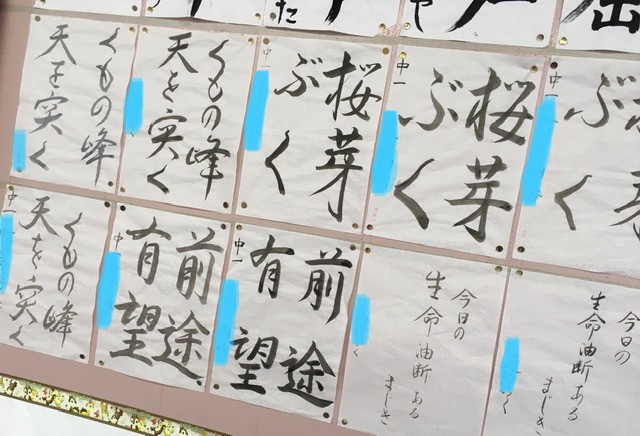 くもの峰
天を突く
くもの峰
天を突く
中一
桜芽
ぶく
中一
桜芽
ぶく
中一
ぶく
中一
くもの峰
天を突く
中一
前途
有望
中
前途
有望
中一
今日の
生命油断ある
まじき
今日の
生命油断ある
まじき